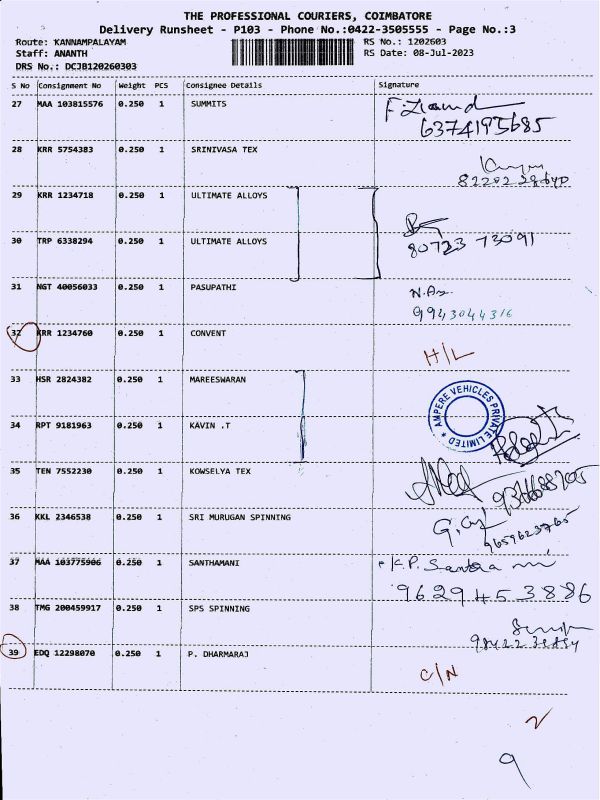 THE PROFESSIONAL COURIERS, COIMBATORE
Delivery Runsheet - P103 - Phone No.:0422-3505555 - Page No.:3
Route: KANNAMPALAYAM RS No.: 1202603
Staff: ANANTH RS Date: 08-Jul-2023
DRS No.: DCJB120260303
S No Consignment No Weight PCS Consignee Details Signature
27 MAA 103815576 0.250 1 SUMMITS
6374195685
28 KRR 5754383 0.250 1 SRINIVASA TEX
29 KRR 1234718 0.250 1 ULTIMATE ALLOYS
30 TRP 6338294 0.250 1 ULTIMATE ALLOYS
80723 73091
31 NGT 40056033 0.250 1 PASUPATHI
9943044316
32 KRR 1234760 0.250 1 CONVENT
H/L
33 HSR 2824382 0.250 1 MAREESWARAN
AMPERE VEHICLES PRIVATE LIMITED
34 RPT 9181963 0.250 1 KAVIN .T
35 TEN 7552230 0.250 1 KOWSELYA TEX
36 KKL 2346538 0.250 1 SRI MURUGAN SPINNING
9659623765
37 MAA 103775906 0.250 1 SANTHAMANI
K.P.
9629453886
38 TMG 200459917 0.250 1 SPS SPINNING
39 EDQ 12298070 0.250 1 P. DHARMARAJ
C/N
2
9